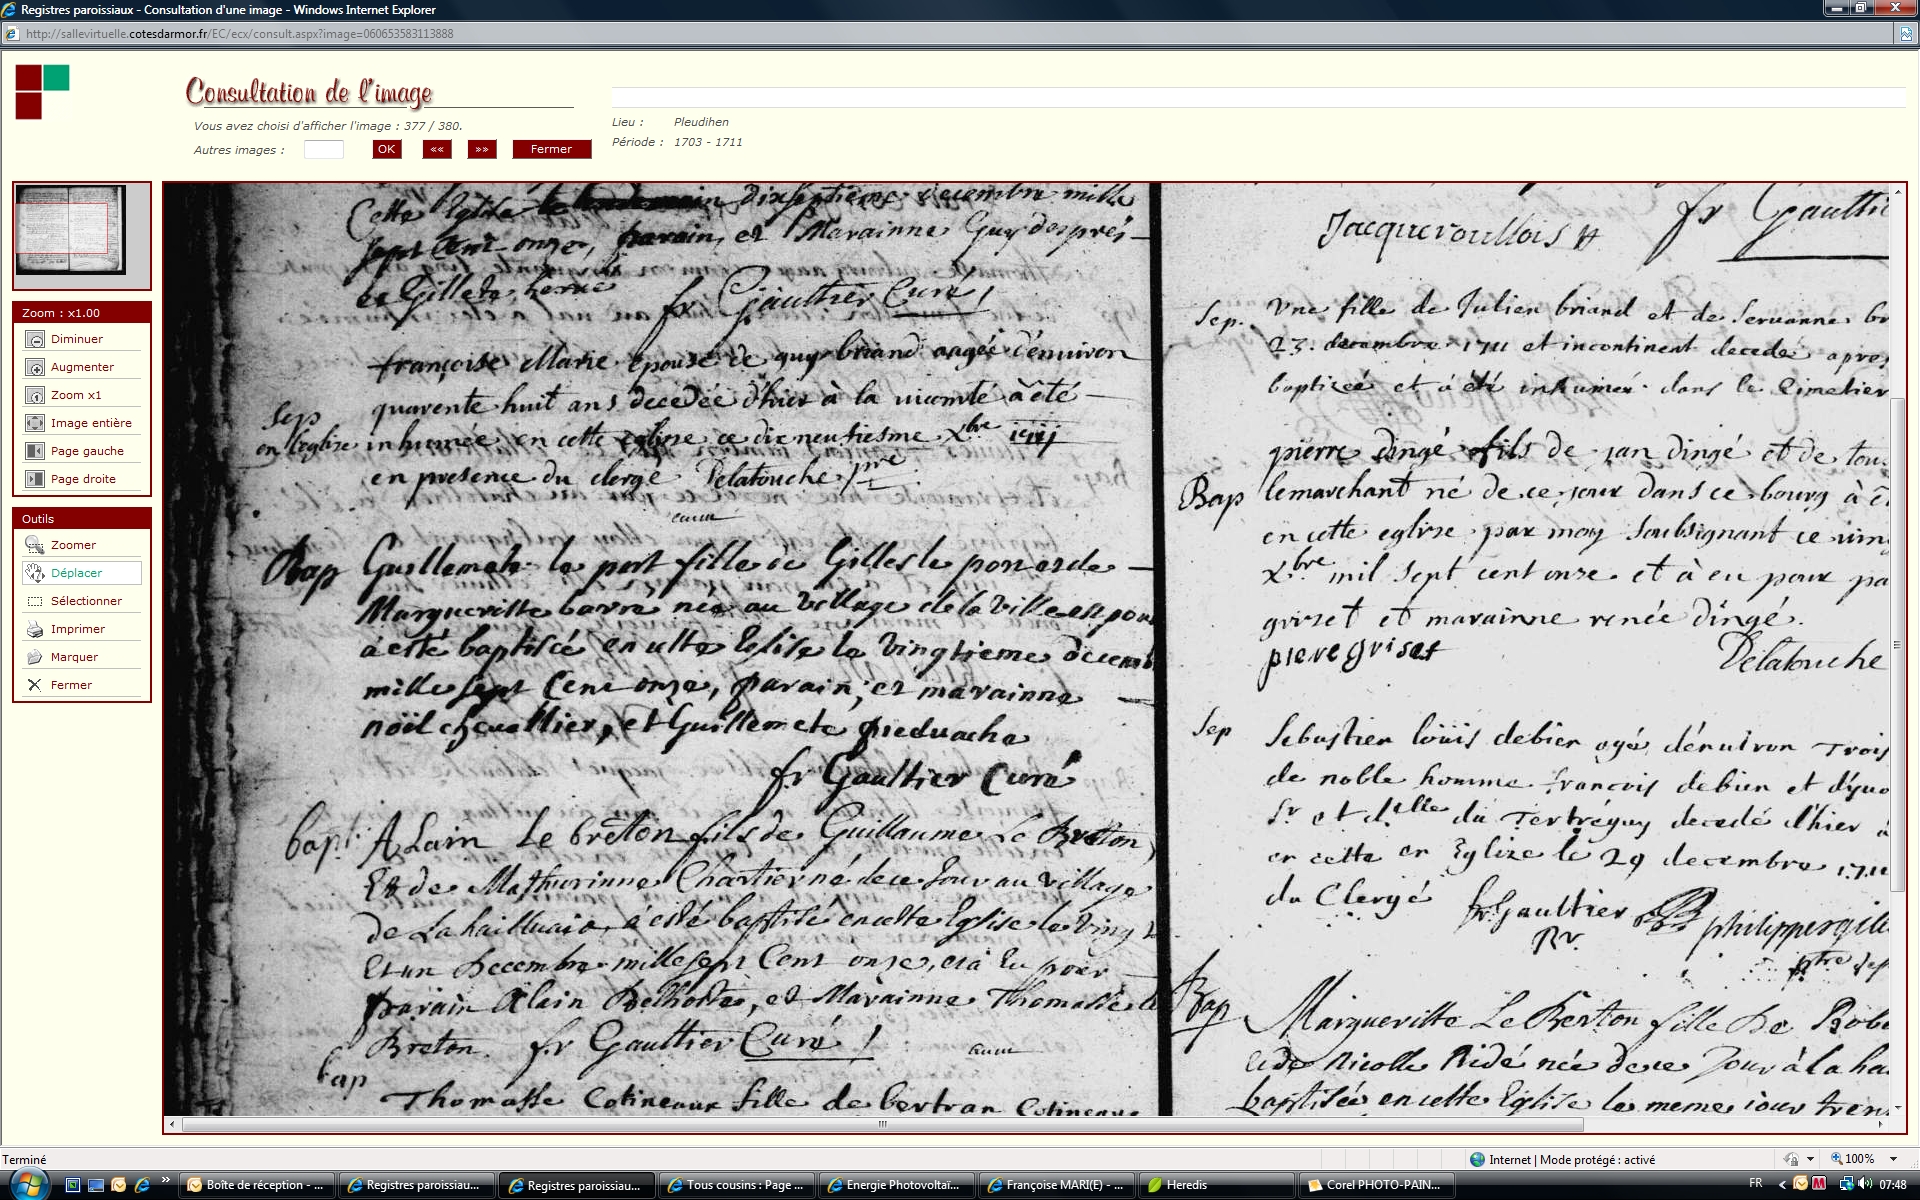 Registres paroissiaux - Consultation d'une image - Windows Internet Explorer
http://sallevirtuelle.cotesdarmor.fr/EC/ecx/consult.aspx?image=060653583113888
Consultation de l'image
Vous avez choisi d'afficher l'image : 377 / 380.
Autres images :
OK
««
»»
Fermer
Lieu : Pleudihen
Période : 1703 - 1711
Zoom : x1.00
Diminuer
Augmenter
Zoom x1
Image entière
Page gauche
Page droite
Outils
Zoomer
Déplacer
Sélectionner
Imprimer
Marquer
Fermer
Cette Eglise dixseptieme decembre mille
sept Cent onze, parain, et Marainne Guy després
et Gillete herue
fr Gaultier Curé
françoise Marie epouse de guy briand aagée d'environ
quarente huit ans décédée d'hier à la vicomté à été
Sep
en l'eglise
inhumée en cette eglise ce dixneufiesme Xbre
en presence du clergé Delatouche pre
Bap
Guillemete le port fille de Gilles le port et de
Margueritte barré née au village de la ville es pou
à esté baptisée en cette Eglise le vingtieme decemb
mille sept Cent onze, parain, et marainne
noël chevallier, et Guillemete
fr Gaultier Curé
bapt
Alain Le breton fils de Guillaume Le Breton
Et de Mathurinne Chartier né de ce Jour au village
de La a esté baptisé en cette Eglise le Vingt
Et un Decembre mille sept Cent onze, et à Eu pour
parain Alain Delhoste, et Marainne Thomasse Le
Breton. fr Gaultier Curé
bap
Thomasse Cotineaux fille de bertran Cotineaux
fr Gaultie
Sep.
Une fille de Julien briand et de Servanne br
23. decembre 1711 et incontinent decedé apres
baptizéé et à été inhumée dans le Cimetier
Bap
pierre dingé fils de jan dingé et de tou
lemarchant né de ce jour dans ce bourg à é
en cette eglise par moy soubsignant ce ving
Xbre mil sept cent onze et à eu pour pa
grizet et marainne renée dingé.
piere griset
Delatouche
Sep
Sebastien louis debien agé d'enuiron Trois
de noble homme françois debien et
Sr et dlle du Tertréguy decedé d'hier à
en cette en Eglize le 29 decembre 1711
du Clergé fr Gaultier
Bap
Margueritte Le Berton fille De Robe
et de Nicolle Ridé née de ce Jour à la ha
baptisée en cette Eglise le meme iour tren
Terminé
Internet | Mode protégé : activé
100%
Boîte de réception - ...
Registres paroissiau...
Registres paroissiau...
Tous cousins : Page ...
Energie Photovoltaï...
Françoise MARI(E) - ...
Heredis
Corel PHOTO-PAIN...
FR
07:48